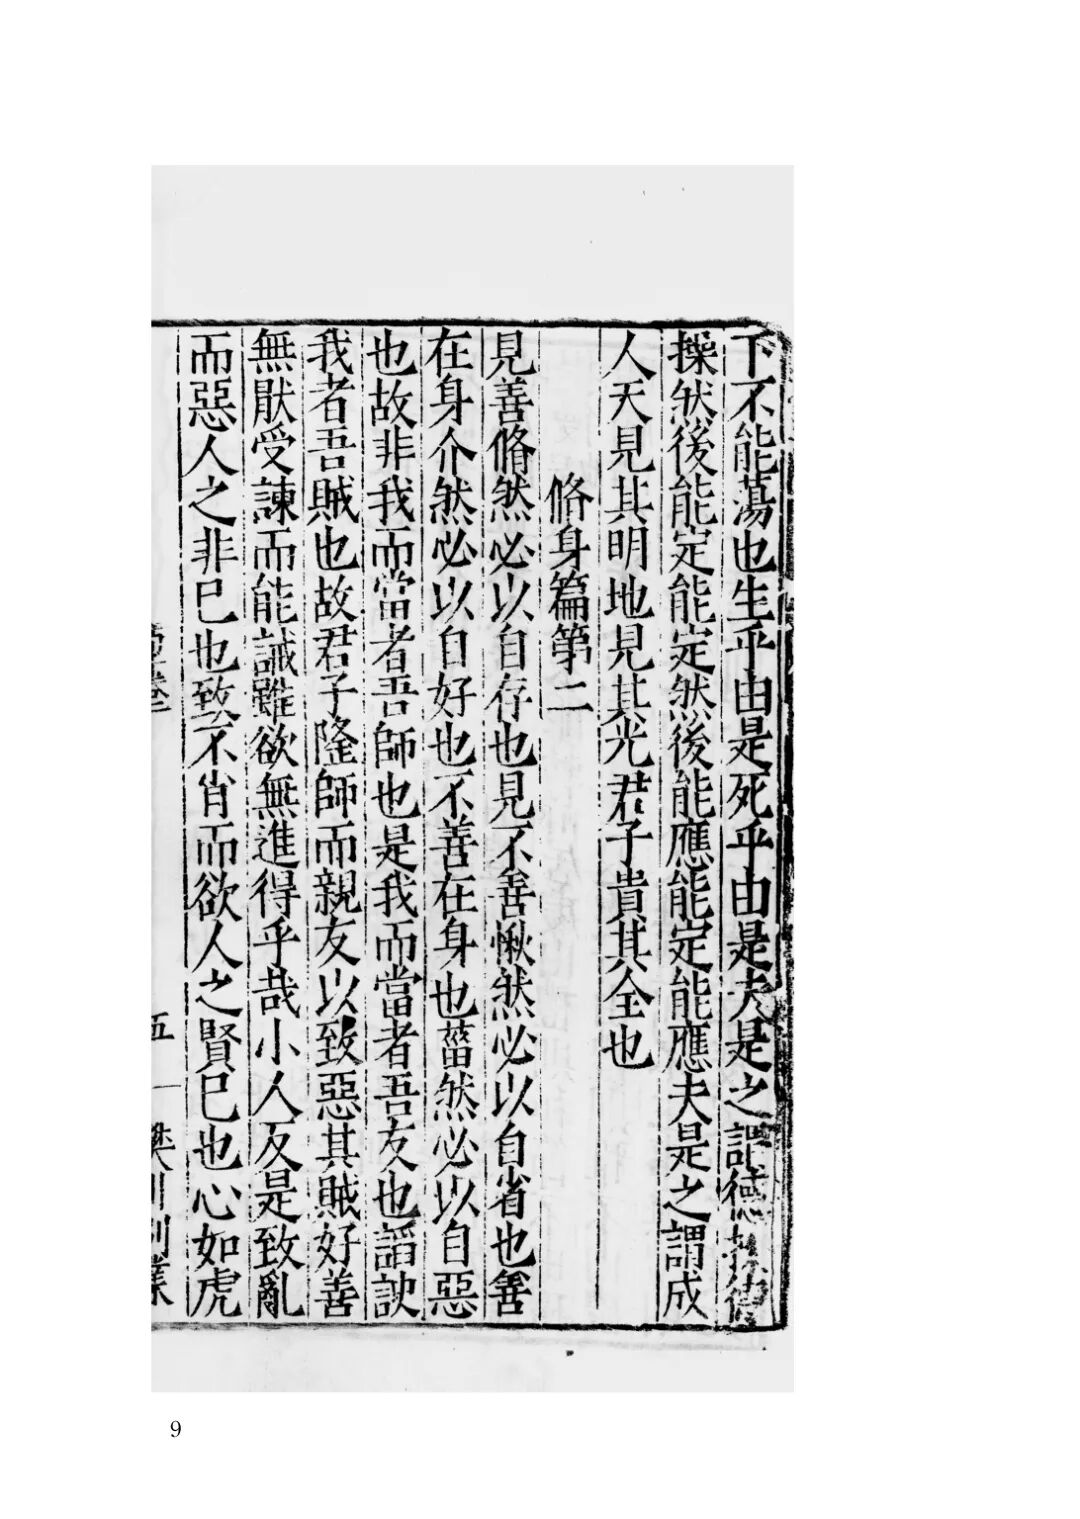 下不能蕩也生乎由是死乎由是夫是之謂德操德
操然後能定能定然後能應能定能應夫是之謂成
人天見其明地見其光君子貴其全也
脩身篇第二
見善脩然必以自存也見不善愀然必以自省也善
在身介然必以自好也不善在身也菑然必以自惡
也故非我而當者吾師也是我而當者吾友也謟諛
我者吾賊也故君子隆師而親友以致惡其賊好善
無猒受諫而能誡雖欲無進得乎哉小人反是致亂
而惡人之非已也致不肖而欲人之賢已也心如虎
五
9